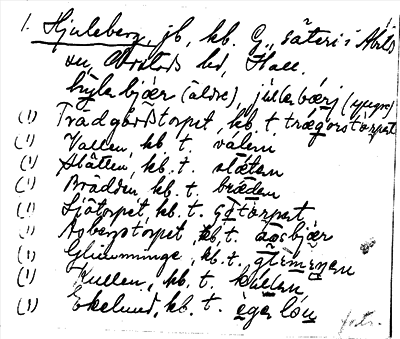 1. Hjuleberg, jb, kb. G., säteri i Abilds
sn, Årstads hd, Hall.
hɥlabjær (äldre), jùllabærj (yngre)
(1) Trädgårdstorpet, kb. t. trægorstorpet
(1) Vallen, kb. t. valen
(1) Slätten, kb. t. slæten
(1) Brädden, kb. t. bræden
(1) Sjötorpet, kb. t.
(1) Asbergstorpet, kb. t. asbjær
(1) Glimminge, kb. t.
(1) Kullen, kb. t. kullen
(1) Ekelund, kb. t. egelön